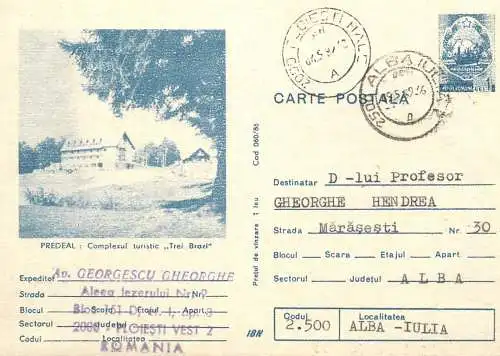 PLOIESTI
ALBA IULIA
2500
CARTE POSTALA
Cod 060/86
Prețul de vînzare 1 leu
PREDEAL : Complexul turistic „Trei Brazi"
Destinatar D -lui Profesor
GHEORGHE HENDREA
Strada Mărăşeşti Nr. 30
Blocul Scara Etajul Apart.
Sectorul Județul ALBA
Codul Localitatea
2.500 ALBA -IULIA
Expeditor Av. GEORGESCU GHEORGHE
Strada Aleea Iezerului Nr. 9
Blocul Scara Etajul Apart.
Sectorul Județul
2000 - PLOIESTI VEST 2
Codul Localitatea
ROMANIA